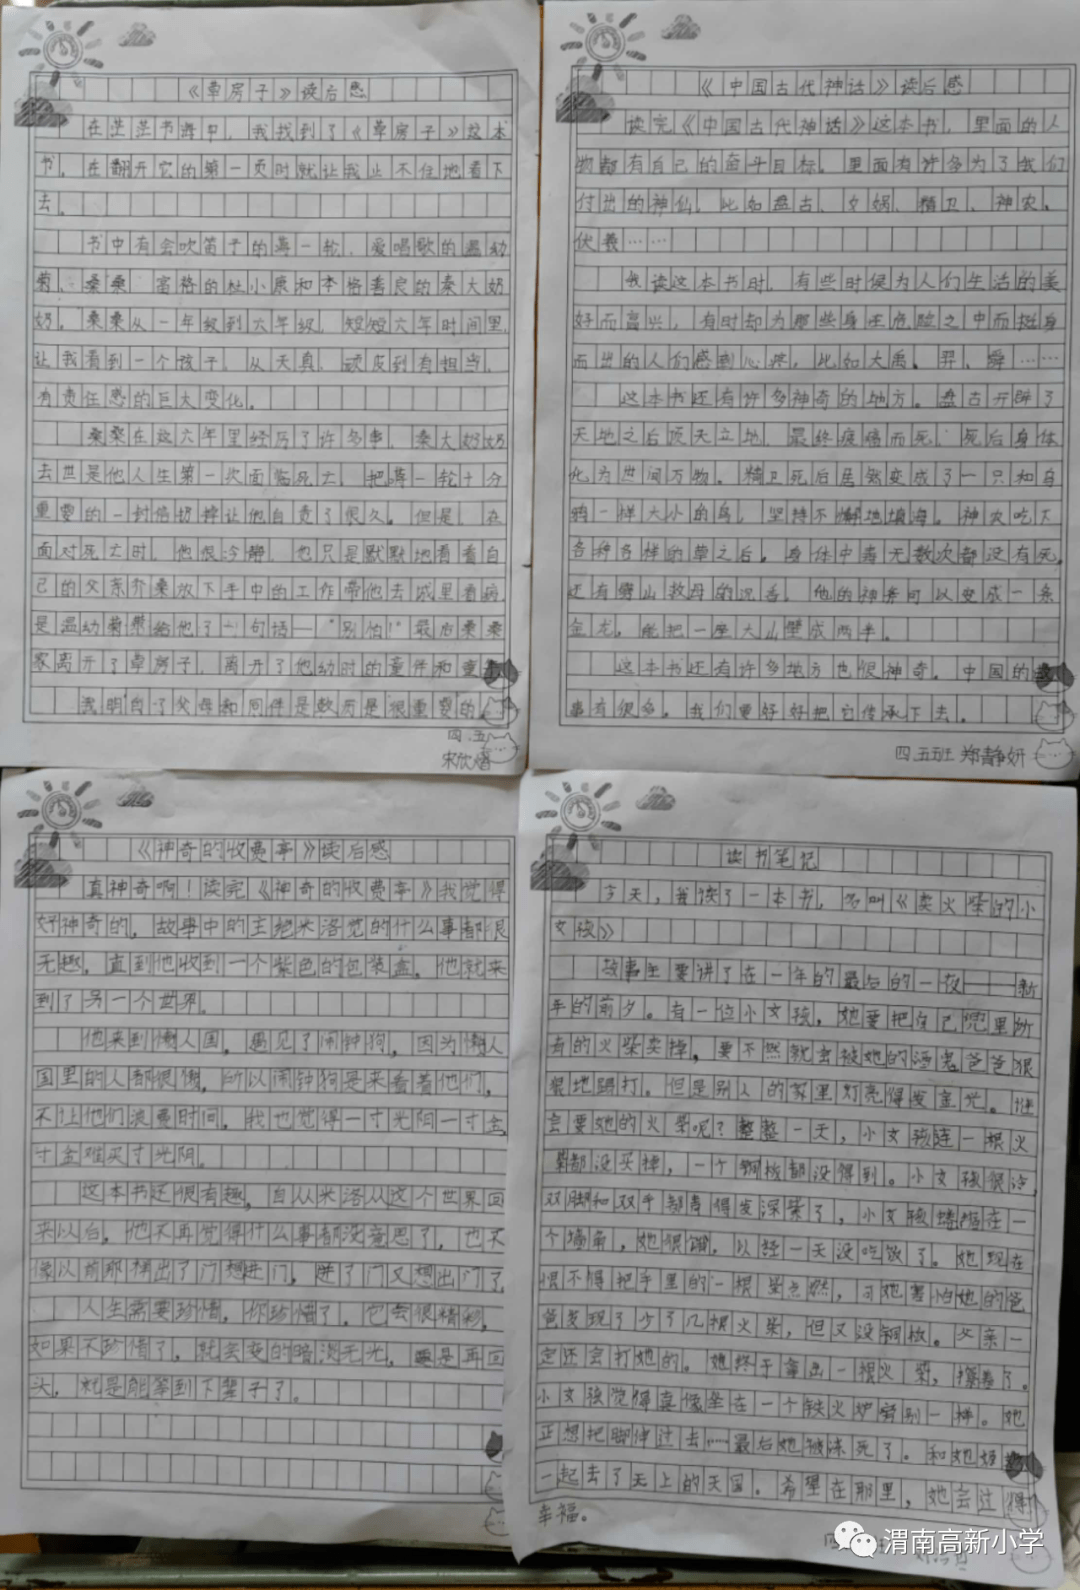 《草房子》读后感
在茫茫书海中，我找到了《草房子》这本
书。在翻开它的第一页时就让我止不住地看下
去。
书中有会吹笛子的蒋一轮、爱唱歌的温幼
菊、桑桑、富裕的杜小康和本格善良的秦大奶
奶。桑桑从一年级到六年级，短短六年时间里，
让我看到一个孩子，从天真、顽皮到有担当、
有责任感的巨大变化。
桑桑在这六年里经历了许多事，秦大奶奶
去世是他人生第一次面临死亡，把蒋一轮十分
重要的一封信扔掉让他自责了很久。但是，在
面对死亡时，他很冷静，也只是默默地看着自
己的父亲乔桑放下手中的工作带他去城里看病
是温幼菊慰给他了一句话—“别怕！”最后桑桑
家离开了草房子，离开了他幼时的童伴和
我明白了父母和同伴是教育是很重要的。
四.五
宋欣
《中国古代神话》读后感
读完《中国古代神话》这本书，里面的人
物都有自己的奋斗目标。里面有许多为了我们
付出的神仙，比如盘古、女娲、精卫、神农、
伏羲……
我读这本书时，有些时候为人们生活的美
好而高兴，有时却为那些身在危险之中而挺身
而出的人们感到心疼，比如大禹、羿、舜……
这本书还有许多神奇的地方。盘古开辟了
天地之后顶天立地，最终疲惫而死，死后身体
化为世间万物。精卫死后居然变成了一只和乌
鸦一样大小的鸟，坚持不懈地填海。神农吃下
各种各样的草之后，身体中毒无数次都没有死。
还有劈山救母的沉香，他的神斧可以变成一条
金龙，能把一座大山劈成两半。
这本书还有许多地方也很神奇。中国的
事有很多。我们要好好把它传承下去。
四.五班 郑静妍
《神奇的收费亭》读后感
真神奇啊！读完《神奇的收费亭》我觉得
好神奇的，故事中的主艳米洛觉的什么事都很
无趣，直到他收到一个紫色的包装盒。他就来
到了另一个世界。
他来到懒人国，遇见了闹钟狗，因为懒人
国里的人都很懒，所以闹钟狗是来看着他们，
不让他们浪费时间。我也觉得一寸光阴一寸金，
寸金难买寸光阴。
这本书还很有趣，自从米洛从这个世界回
来以后，他不再觉得什么事都没意思了，也不
像以前那样出了门想进门，进了门又想出门了。
人生需要珍惜，你珍惜了，也会很精彩，
如果不珍惜了，就会变的暗淡无光，要是再回
头，就是能等到下辈子了。
读书笔记
今天，我读了一本书，名叫《卖火柴的小
女孩》
故事主要讲了在一年的最后的一夜——新
年的前夕。有一位小女孩，她要把自己兜里所
有的火柴卖掉，要不然就会被她的酒鬼爸爸狠
狠地踢打。但是别人的家里灯亮得发金光。谁
会要她的火柴呢？整整一天，小女孩连一根火
柴都没买掉，一个铜板都没得到。小女孩很冷，
双脚和双手都青得发深紫了，小女孩蜷缩在一
个墙角，她很饿，以经一天没吃饭了。她现在
恨不得把手里的一根柴点燃，可她害怕她的爸
爸发现了少了几根火柴，但又没铜板。父亲一
定还会打她的。她终于拿出一根火柴，擦着了。
小女孩觉得真像坐在一个铁火炉旁别一样。她
正想把脚伸过去……最后她被冻死了。和她奶
一起去了天上的天国。希望在那里，她会过得
幸福。
四
渭南高新小学